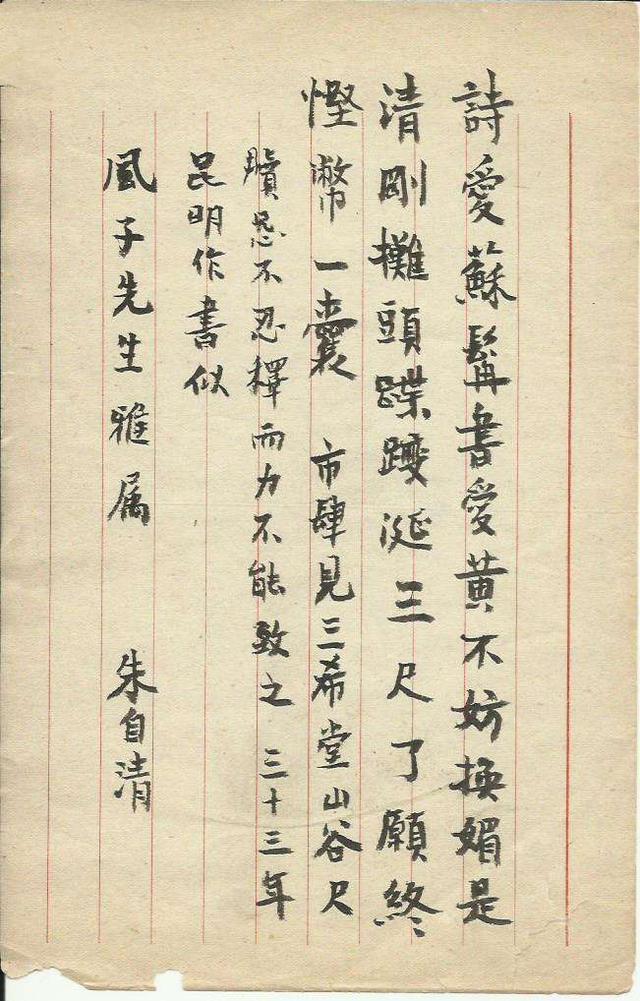 詩愛蘇髯書愛黃不妨換媚是
清剛攤頭蹀躞涎三尺了願終
慳幣一囊 市肆見三希堂山谷尺
牘忍不忍釋而力不能致之 三十三年
昆明作書似
風子先生雅属 朱自清